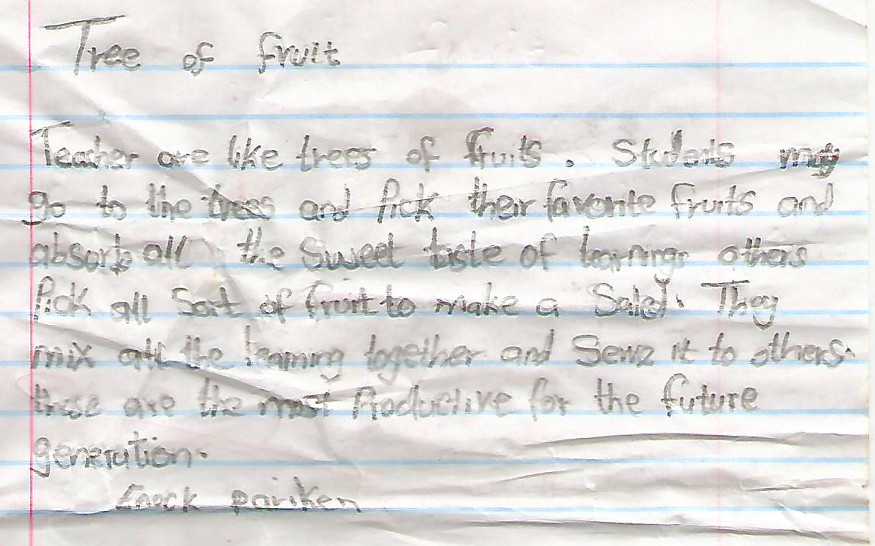 Tree of fruit
Teacher are like trees of fruits. Students may
go to the trees and Pick their favorite fruits and
absorb all the sweet taste of learning. others
Pick all Sort of fruit to make a Salad. They
mix all the learning together and Serve it to others.
these are the most Productive for the future
generation.
Enock pariken